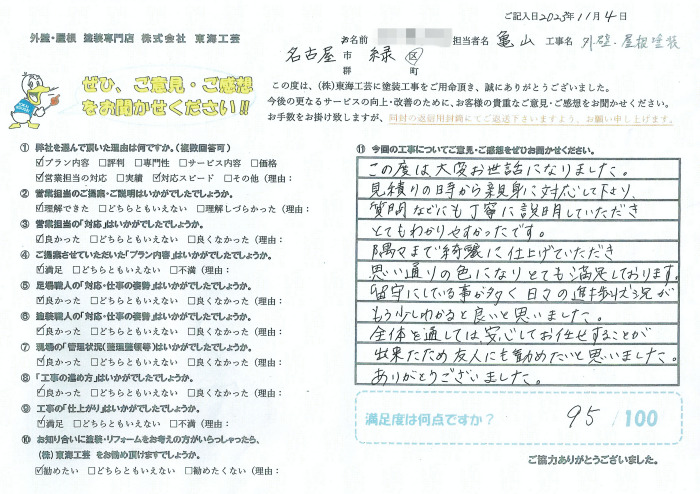 ご記入日2023年11月4日
外壁・屋根 塗装専門店 株式会社 東海工芸
お名前 担当者名 亀山 工事名 外壁・屋根塗装
名古屋 市 郡 緑 区 町
ぜひ、ご意見・ご感想
をお聞かせください!!
この度は、(株)東海工芸に塗装工事をご用命頂き、誠にありがとうございました。
今後の更なるサービスの向上・改善のために、お客様の貴重なご意見・ご感想をお聞かせください。
お手数をお掛け致しますが、同封の返信用封筒にてご返送下さいますよう、お願い申し上げます。
① 弊社を選んで頂いた理由は何ですか。(複数回答可)
☑プラン内容 □評判 □専門性 □サービス内容 □価格
☑営業担当の対応 □実績 ☑対応スピード □その他(理由:
② 営業担当のご提案・ご説明はいかがでしたでしょうか。
☑理解できた □どちらともいえない □理解しづらかった(理由:
③ 営業担当の「対応」はいかがでしたでしょうか。
☑良かった □どちらともいえない □良くなかった(理由:
④ ご提案させていただいた「プラン内容」はいかがでしたでしょうか。
☑満足 □どちらともいえない □不満(理由:
⑤ 足場職人の「対応・仕事の姿勢」はいかがでしたでしょうか。
☑良かった □どちらともいえない □良くなかった(理由:
⑥ 塗装職人の「対応・仕事の姿勢」はいかがでしたでしょうか。
☑良かった □どちらともいえない □良くなかった(理由:
⑦ 現場の「管理状況(整理整頓等)はいかがでしたでしょうか。
☑良かった □どちらともいえない □良くなかった(理由:
⑧ 「工事の進め方」はいかがでしたでしょうか。
☑良かった □どちらともいえない □良くなかった(理由:
⑨ 工事の「仕上がり」はいかがでしたでしょうか。
☑満足 □どちらともいえない □不満(理由:
⑩ お知り合いに塗装・リフォームをお考えの方がいらっしゃったら、
(株)東海工芸 をお勧め頂けますでしょうか。
☑勧めたい □どちらともいえない □勧めたくない(理由:
⑪ 今回の工事についてご意見・ご感想をぜひお聞かせください。
この度は大変お世話になりました。
見積りの時から親身に対応して下さり、
質問などにも丁寧に説明していただき
とてもわかりやすかったです。
隅々まで綺麗に仕上げていただき
思い通りの色になりとても満足しております。
留守にしている事が多く日々の進捗状況が
もう少しわかると良いと思いました。
全体を通しては安心してお任せすることが
出来たため友人にも勧めたいと思いました。
ありがとうございました。
満足度は何点ですか? 95 /100
ご協力ありがとうございました。